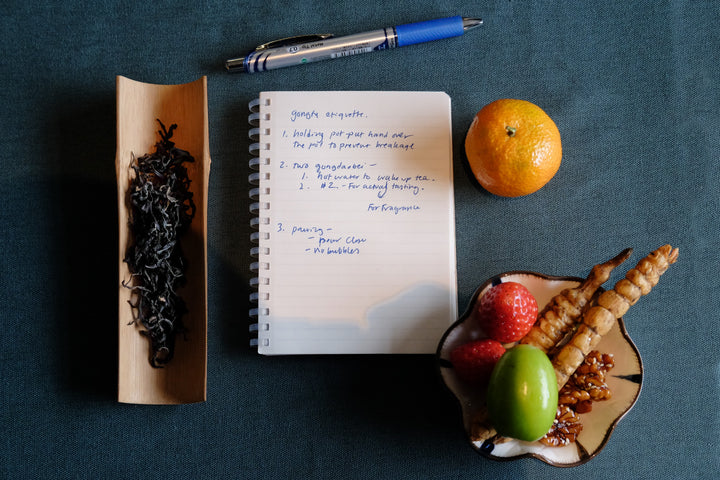 gongfu etiquette.
1. holding pot - put hand over
the pot to prevent breakage
2. Two gongdaobei -
1. hot water to wake up tea.
2. #2. - For actual tasting.
For Fragrance
3. pouring -
- pour close
- no bubbles